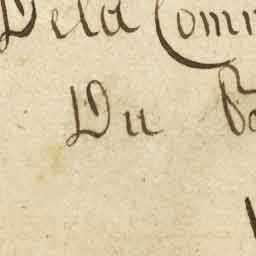 Dela Comm
Du